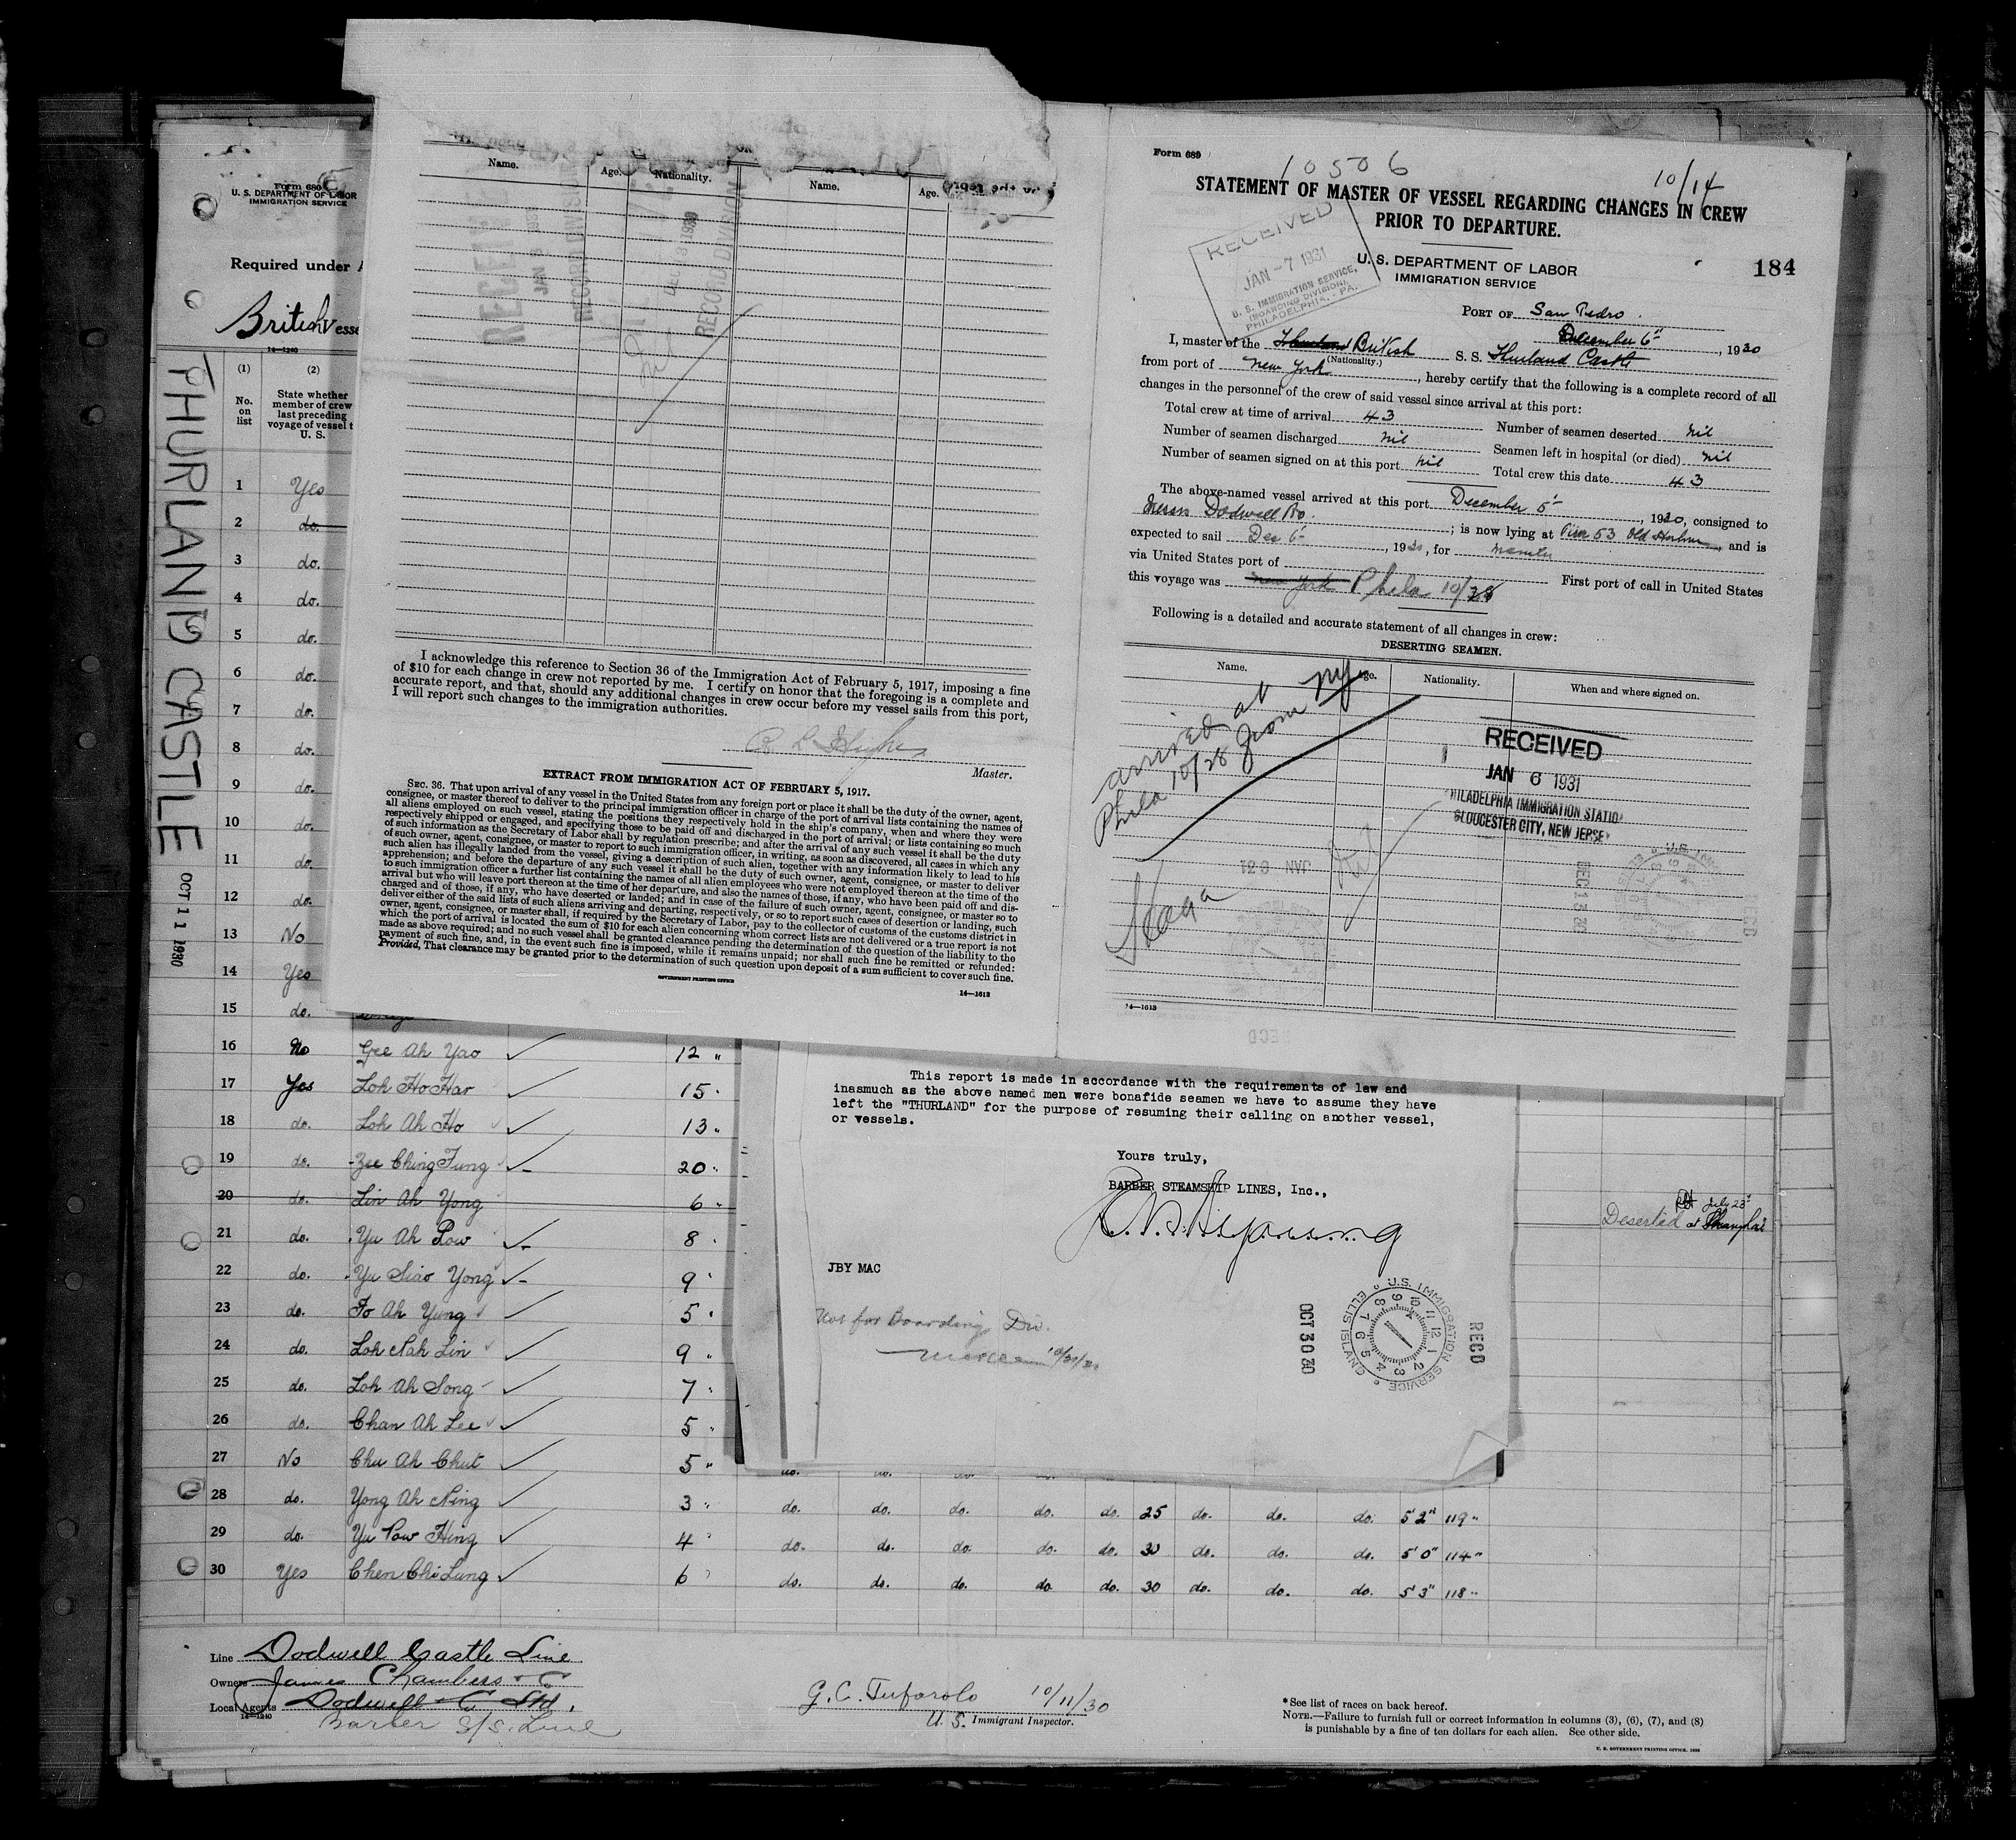 Form 689
U. S. DEPARTMENT OF LABOR
IMMIGRATION SERVICE
Required under
British
14—1240
THURLAND CASTLE
OCT 11 1930
(1)
(2)
No.
on
list
State whether
member of crew
last preceding
voyage of vessel t
U. S.
1 Yes
2 do.
3 do.
4 do.
5 do.
6 do.
7 do.
8 do.
9 do.
10 do.
11 do.
12 do.
13 No
14 Yes
15 do.
16 No Gee Ah Yao 12 "
17 Yes Loh Ho Har 15 "
18 do. Loh Ah Ho 13 "
19 do. Zee Ching Fung 20 "
20 do. Lin Ah Yong 6 " Deserted at Shanghai July 23
21 do. Yu Ah Pow 8 "
22 do. Yu Siao Yong 9 "
23 do. Fo Ah Yung 5 "
24 do. Loh Nah Lin 9 "
25 do. Loh Ah Song 7 "
26 do. Chan Ah Lee 5 "
27 No Chu Ah Chut 5 "
28 do. Yong Ah Ning 3 " do. do. do. do. do. 25 do. do. do. 5'2" 119 "
29 do. Yu Pow Hing 4 " do. do. do. do. do. 30 do. do. do. 5'0" 114 "
30 Yes Chen Chi Lung 6 " do. do. do. do. do. 30 do. do. do. 5'3" 118 "
Line Dodwell Castle Line
Owners James Chambers & Co
Local Agents Dodwell & Co Ltd.
14—1240
Barber S/S. Line
G. C. Tuforolo 10/11/30
U. S. Immigrant Inspector.
*See list of races on back hereof.
NOTE.—Failure to furnish full or correct information in columns (3), (6), (7), and (8)
is punishable by a fine of ten dollars for each alien. See other side.
U. S. GOVERNMENT PRINTING OFFICE, 1929
Name. Age. Nationality. Name. Age.
RECORD DIVISION
I acknowledge this reference to Section 36 of the Immigration Act of February 5, 1917, imposing a fine
of $10 for each change in crew not reported by me. I certify on honor that the foregoing is a complete and
accurate report, and that, should any additional changes in crew occur before my vessel sails from this port,
I will report such changes to the immigration authorities.
R. L. Hughes
Master.
EXTRACT FROM IMMIGRATION ACT OF FEBRUARY 5, 1917.
SEC. 36. That upon arrival of any vessel in the United States from any foreign port or place it shall be the duty of the owner, agent,
consignee, or master thereof to deliver to the principal immigration officer in charge of the port of arrival lists containing the names of
all aliens employed on such vessel, stating the positions they respectively hold in the ship's company, when and where they were
respectively shipped or engaged, and specifying those to be paid off and discharged in the port of arrival; or lists containing so much
of such information as the Secretary of Labor shall by regulation prescribe; and after the arrival of any such vessel it shall be the duty
of such owner, agent, consignee, or master to report to such immigration officer, in writing, as soon as discovered, all cases in which any
such alien has illegally landed from the vessel, giving a description of such alien, together with any information likely to lead to his
apprehension; and before the departure of any such vessel it shall be the duty of such owner, agent, consignee, or master to deliver
to such immigration officer a further list containing the names of all alien employees who were not employed thereon at the time of the
arrival but who will leave port thereon at the time of her departure, and also the names of those, if any, who have been paid off and dis-
charged and of those, if any, who have deserted or landed; and in case of the failure of such owner, agent, consignee, or master so to
deliver either of the said lists of such aliens arriving and departing, respectively, or so to report such cases of desertion or landing, such
owner, agent, consignee, or master shall, if required by the Secretary of Labor, pay to the collector of customs of the customs district in
which the port of arrival is located the sum of $10 for each alien concerning whom correct lists are not delivered or a true report is not
made as above required; and no such vessel shall be granted clearance pending the determination of the question of the liability to the
payment of such fine, and, in the event such fine is imposed, while it remains unpaid; nor shall such fine be remitted or refunded:
Provided, That clearance may be granted prior to the determination of such question upon deposit of a sum sufficient to cover such fine.
GOVERNMENT PRINTING OFFICE
14—1613
Form 689
10506
10/14
STATEMENT OF MASTER OF VESSEL REGARDING CHANGES IN CREW
PRIOR TO DEPARTURE.
RECEIVED
JAN -7 1931
U. S. IMMIGRATION SERVICE,
(BOARDING DIVISION)
PHILADELPHIA, - PA.
U. S. DEPARTMENT OF LABOR
IMMIGRATION SERVICE
184
PORT OF San Pedro.
December 6th, 1930
I, master of the British S. S. Thurland Castle
(Nationality.)
from port of New York, hereby certify that the following is a complete record of all
changes in the personnel of the crew of said vessel since arrival at this port:
Total crew at time of arrival 43 Number of seamen deserted nil
Number of seamen discharged nil Seamen left in hospital (or died) nil
Number of seamen signed on at this port nil Total crew this date 43
The above-named vessel arrived at this port December 5th, 1930, consigned to
Messrs Dodwell Co.; is now lying at Pier 53 Old Harbor and is
expected to sail Dec 6th, 1930, for Manila
via United States port of First port of call in United States
this voyage was New York Phila 10/28
Following is a detailed and accurate statement of all changes in crew:
DESERTING SEAMEN.
Name. Age. Nationality. When and where signed on.
arrived at
Phila 10/28 from NY
RECEIVED
JAN 6 1931
PHILADELPHIA IMMIGRATION STATION
GLOUCESTER CITY, NEW JERSEY
JAN 6 31
DEC 13 30
RECD
14—1613
This report is made in accordance with the requirements of law and
inasmuch as the above named men were bonafide seamen we have to assume they have
left the "THURLAND" for the purpose of resuming their calling on another vessel,
or vessels.
Yours truly,
BARBER STEAMSHIP LINES, Inc.,
JBY MAC
Not for Boarding Div.
10/30/30
OCT 30 30
U.S. IMMIGRATION SERVICE
ELLIS ISLAND
RECD